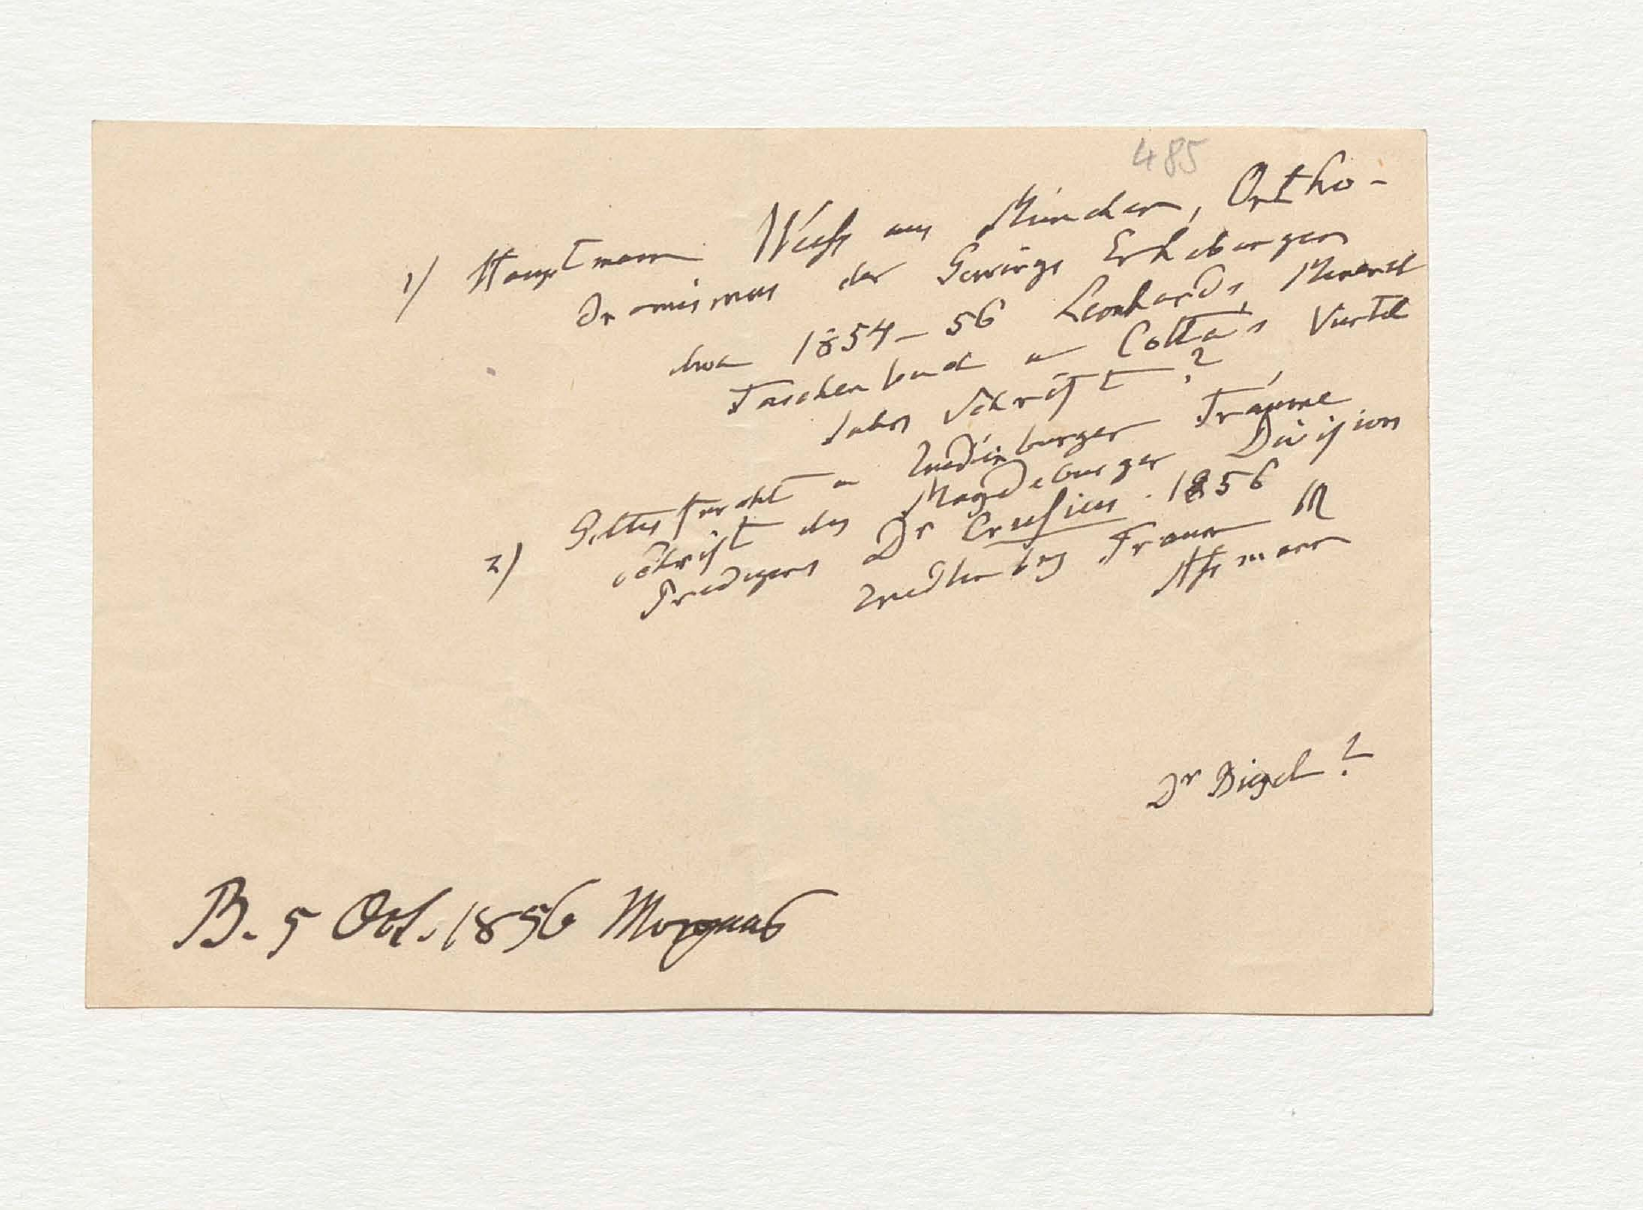 485
1) Hauptmann Weiß aus München, Ortho-
dromismus der Gebirgs Erhebungen
1854–56 Leonhards Mineral
Taschenbuch in Cotta's Viertel
Jahrs Schrift?
2) Gottesfurcht in Quedlinburger Träume
Schrift des Magdeburger Division
Predigers Dr Crusius. 1856
Quedlinburg Franz
Dr Biegel?
B. 5 Oct. 1856 Morgens